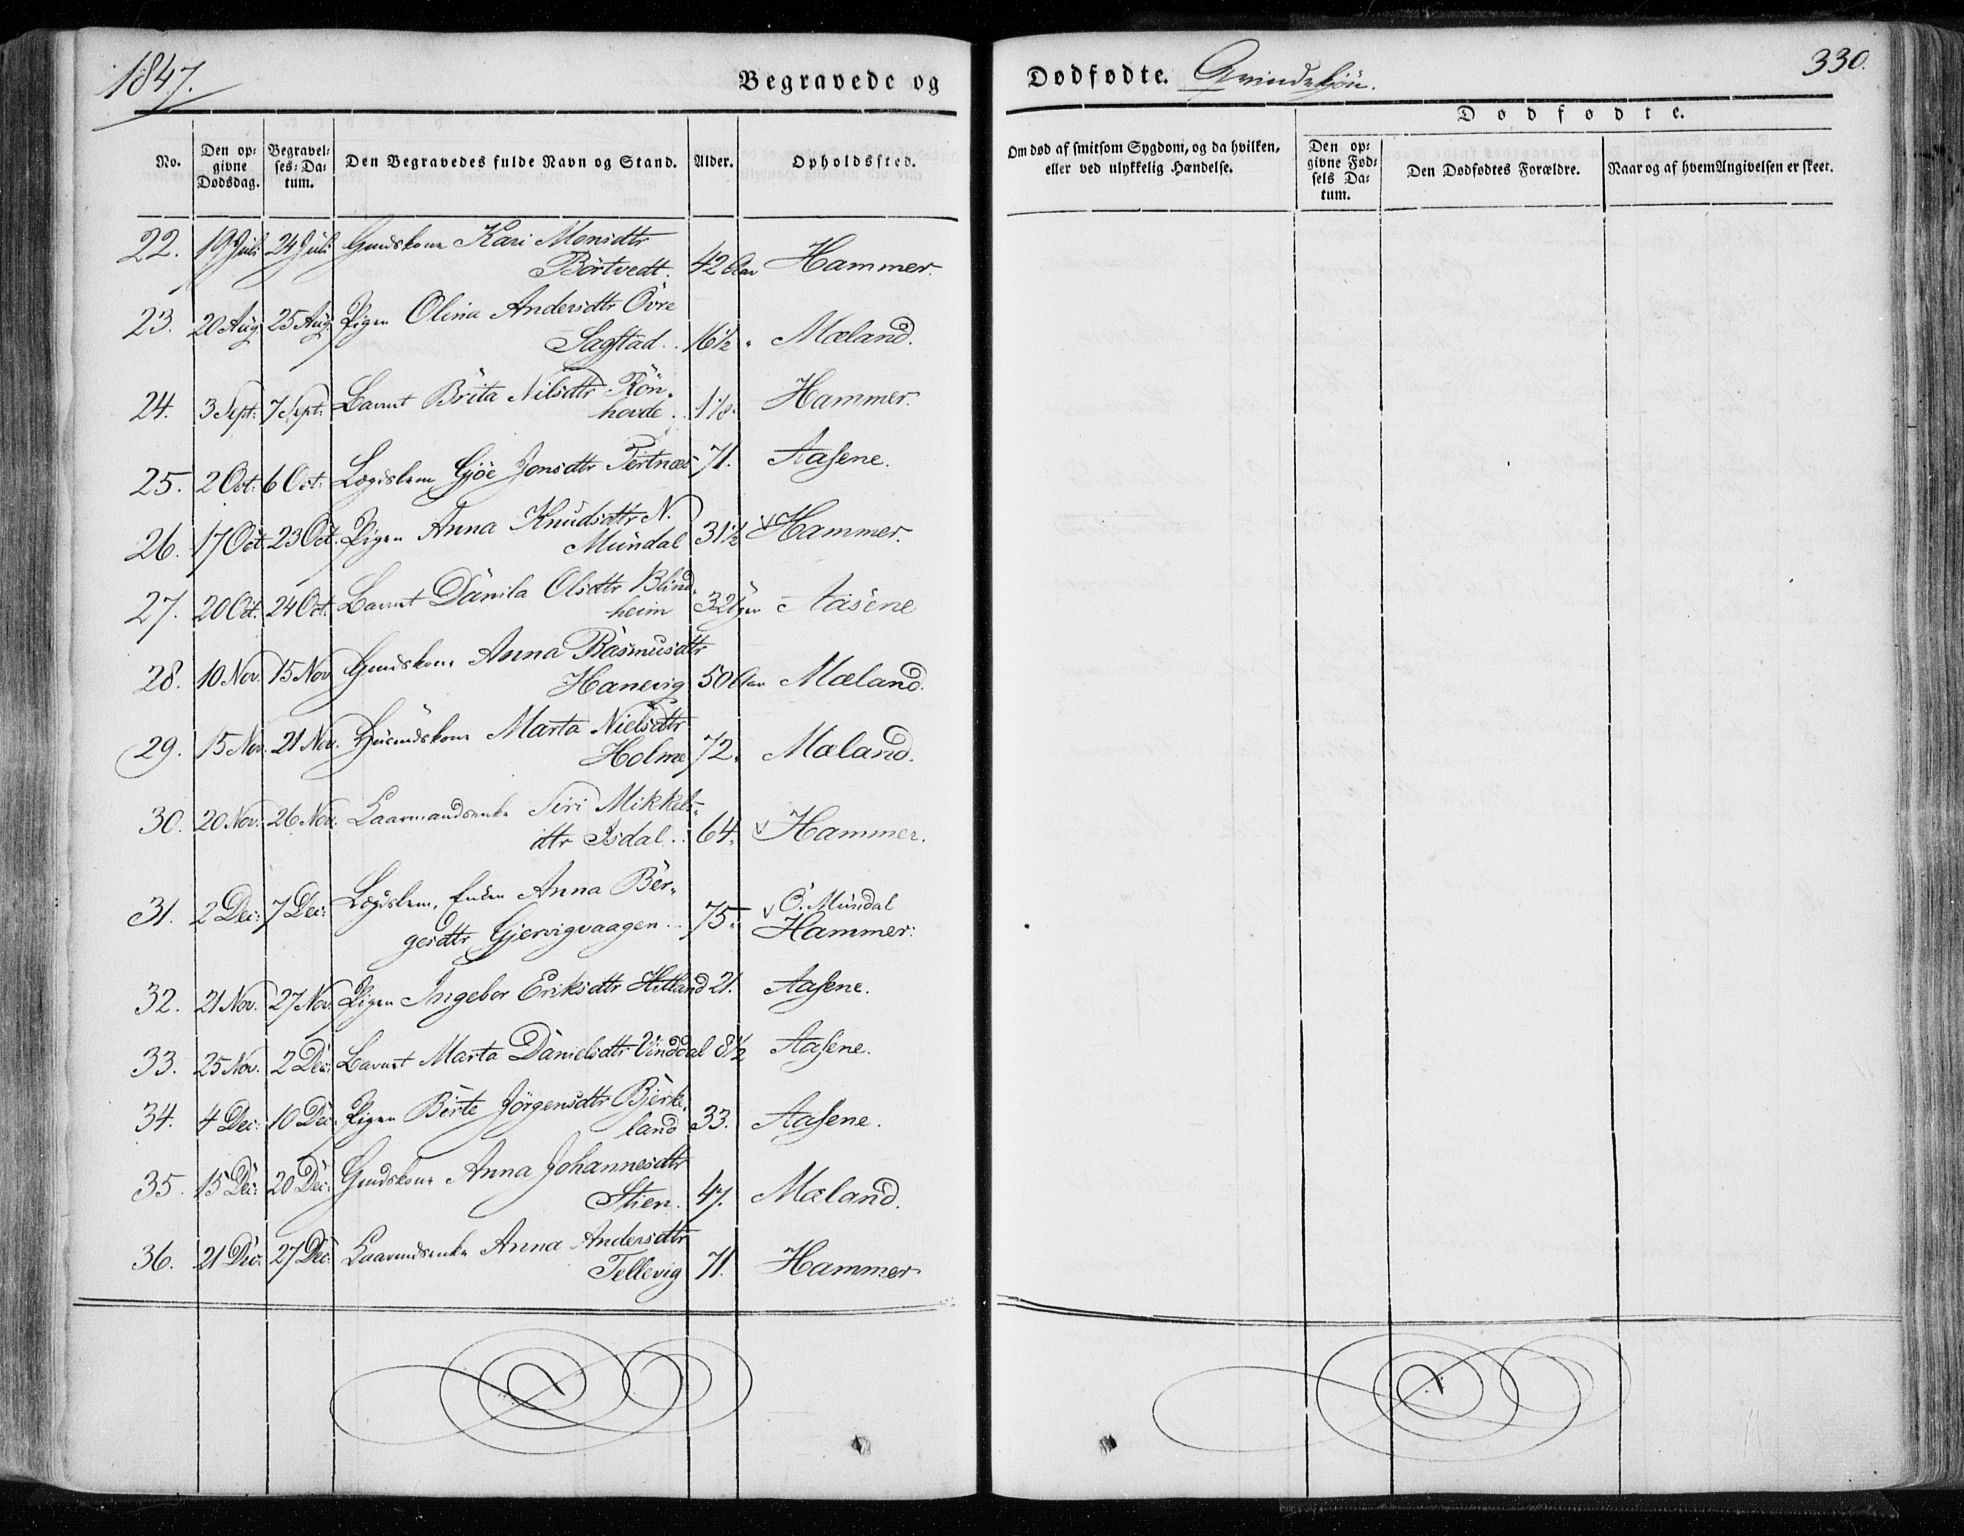 1847.
Begravede og
Dødfødte. Qvindekjön.
330.
No.
Den op-
givne
Dødsdag.
Begravel-
ses-Da-
tum.
Den Begravedes fulde Navn og Stand.
Alder.
Opholdssted.
Om død af smitsom Sygdom, og da hvilken,
eller ved ulykkelig Hændelse.
Dødfødte.
Den op-
givne Fød-
sels Da-
tum.
Den Dødfødtes Forældre.
Naar og af hvem Angivelsen er skeet.
22. 19 Juli 24 Juli Gmdskone Kari Monsdtr
Börtvedt. 42 Aar Hammer.
23. 20 Aug 25 Aug Pigen Olina Andersdtr Övre
Sagstad.. 16½ " Mæland.
24. 3 Sept: 7 Sept: Barnet Brita Nilsdtr Rön-
hovde. 1⅛ Hammer.
25. 2 Oct: 6 Oct: Lægdslem Gjöe Jonsdtr Tertnæs 71. Aasene.
26. 17 Oct. 23 Oct. Pigen Anna Knudsdtr N.
Mundal 31½ v Hammer.
27. 20 Oct. 24 Oct. Barnet Danila Olsdtr Blind-
heim 32 Uger Aasene
28. 10 Nov. 15 Nov Gmdskone Anna Rasmusdtr
Hanevig 50 Aar Mæland.
29. 15 Nov. 21 Nov. Huusmdskone Marta Nielsdtr
Holme 72. Mæland.
30. 20 Nov. 26 Nov. Kaarmandsenke Siri Mikkels-
dtr Isdal.. 64. v Hammer.
31. 2 Dec: 7 Dec: Lægdslem, Enken Anna Bör-
gesdtr Gjervigvaagen.. 75. v Ö. Mundal
Hammer:
32. 21 Nov. 27 Nov. Pigen Ingebor Eriksdtr Hitland 21. Aasene.
33. 25 Nov. 2 Dec: Barnet Marta Danielsdtr Unddal 8½ Aasene.
34. 4 Dec: 10 Dec. Pigen Birte Jörgensdtr Bjerke-
land 33. Aasene.
35. 15 Dec: 20 Dec: Gmdskone Anna Johannesdtr
Stien. 47. Mæland.
36. 21 Dec. 27 Dec: Kaarmdsenke Anna Andersdtr
Tellevig 71. Hammer